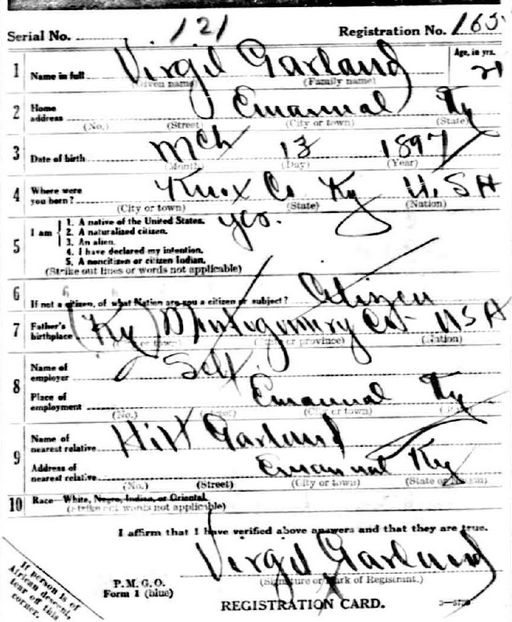 Serial No. 121 Registration No. 165
1 Name in full Virgil Garland Age, in yrs. 21
(Given name) (Family name)
2 Home address Emanual Ky
(No.) (Street) (City or town) (State)
3 Date of birth Mch 13 1897
(Month) (Day) (Year)
4 Where were you born? Knox Co Ky U.S A
(City or town) (State) (Nation)
5 I am 1. A native of the United States. yes.
2. A naturalized citizen.
3. An alien.
4. I have declared my intention.
5. A noncitizen or citizen Indian.
(Strike out lines or words not applicable)
6 If not a citizen, of what Nation are you a citizen or subject? Citizen
7 Father's birthplace (Ky) Montgomery Co USA
(City or province) (Nation)
8 Name of employer Self
Place of employment Emanual Ky
(No.) (City or town)
9 Name of nearest relative Garland
Address of nearest relative Emanual Ky
(No.) (Street) (City or town) (State or Nation)
10 Race—White, Negro, Indian, or Oriental.
(Strike out words not applicable)
I affirm that I have verified above answers and that they are true.
Virgil Garland
(Signature or mark of Registrant.)
P. M. G. O.
Form 1 (blue)
REGISTRATION CARD.
If person is of
African descent,
tear off this
corner.